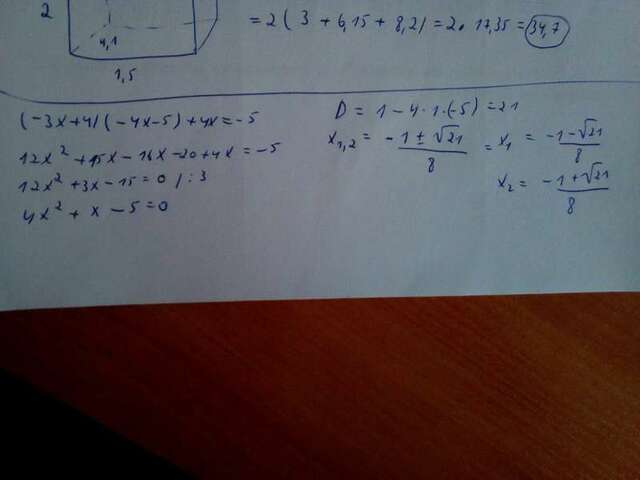 2
4,1
1,5
= 2 ( 3 + 6,15 + 8,2) = 2 · 17,35 = 34,7
(-3x+4)(-4x-5)+4x=-5
12x² + 15x - 16x - 20 + 4x = -5
12x² + 3x - 15 = 0 / : 3
4x² + x - 5 = 0
D = 1 - 4 · 1 · (-5) = 21
x₁,₂ = -1 ± √21 / 8 = x₁ = -1 - √21 / 8
x₂ = -1 + √21 / 8